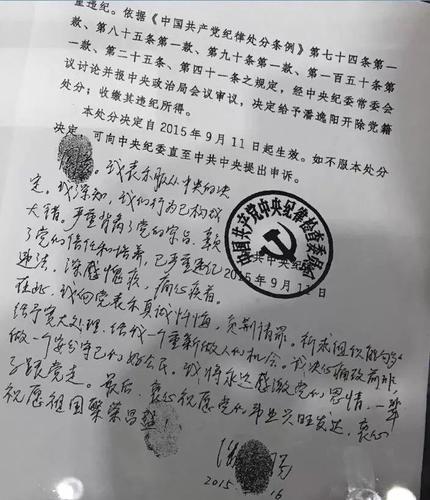 重违纪。依据《中国共产党纪律处分条例》第七十四条第一
款、第八十五条第一款、第九十条第一款、第一百五十条第
一款、第二十五条、第四十一条之规定，经中央纪委常委会
议讨论并报中央政治局会议审议，决定给予潘逸阳开除党籍
处分；收缴其违纪所得。
本处分决定自2015年9月11日起生效。如不服本处分
决定，可向中央纪委直至中共中央提出申诉。
我表示服从中央的决
定。我深知，我们行为已构成
大错。严重背离了党的宗旨，辜负
了党的信任和培养，已严重违纪
违法，深感愧疚，痛心疾首。
在此，我向党表示真诚忏悔，负荆请罪。祈求组织能够
给予宽大处理，给我一个重新做人的机会。我决心痛改前非
做一个安分守己的好公民。我将永远感激党的恩情，一辈
子跟党走。最后，衷心祝愿党的事业兴旺发达，衷心
祝愿祖国繁荣昌盛！
中国共产党中央纪律检查委员会
中共中央纪
2015年9月11日
潘 阳
2015 16